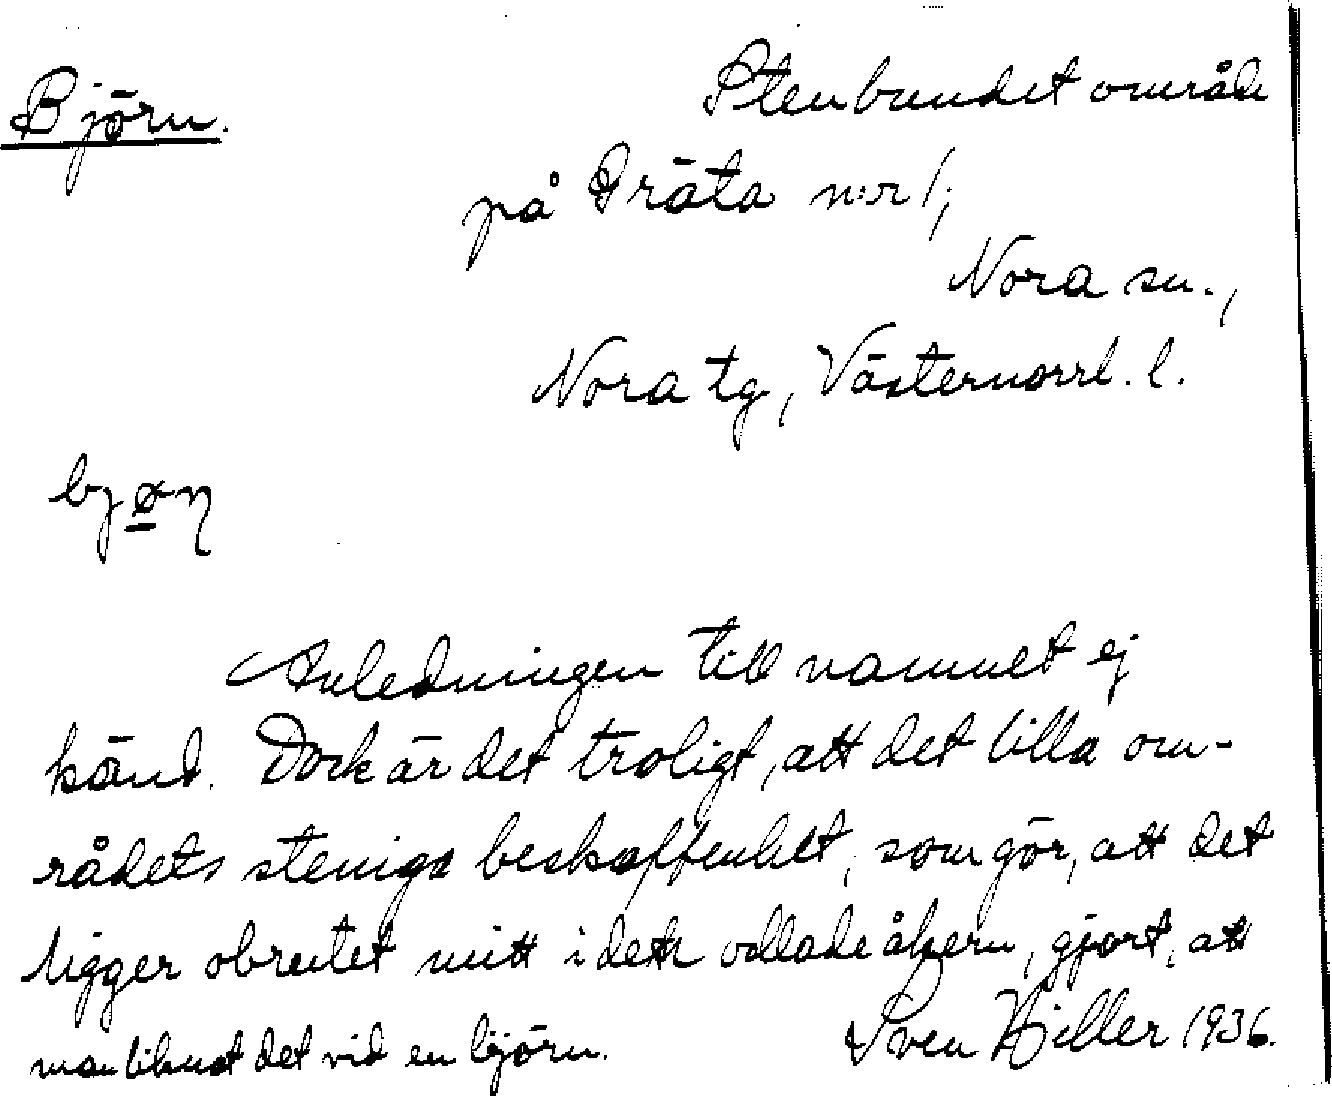 Björn.
Stenbundet område
på Präta n:r 1,
Nora sn.,
Nora tg, Västernorrl. l.
bjøn
Anledningen till namnet ej
känd. Dock är det troligt, att det lilla om-
rådets steniga beskaffenhet, som gör, att det
ligger obrutet mitt i den odlade åkern, gjort, att
man liknat det vid en björn.
Sven Hiller 1936.